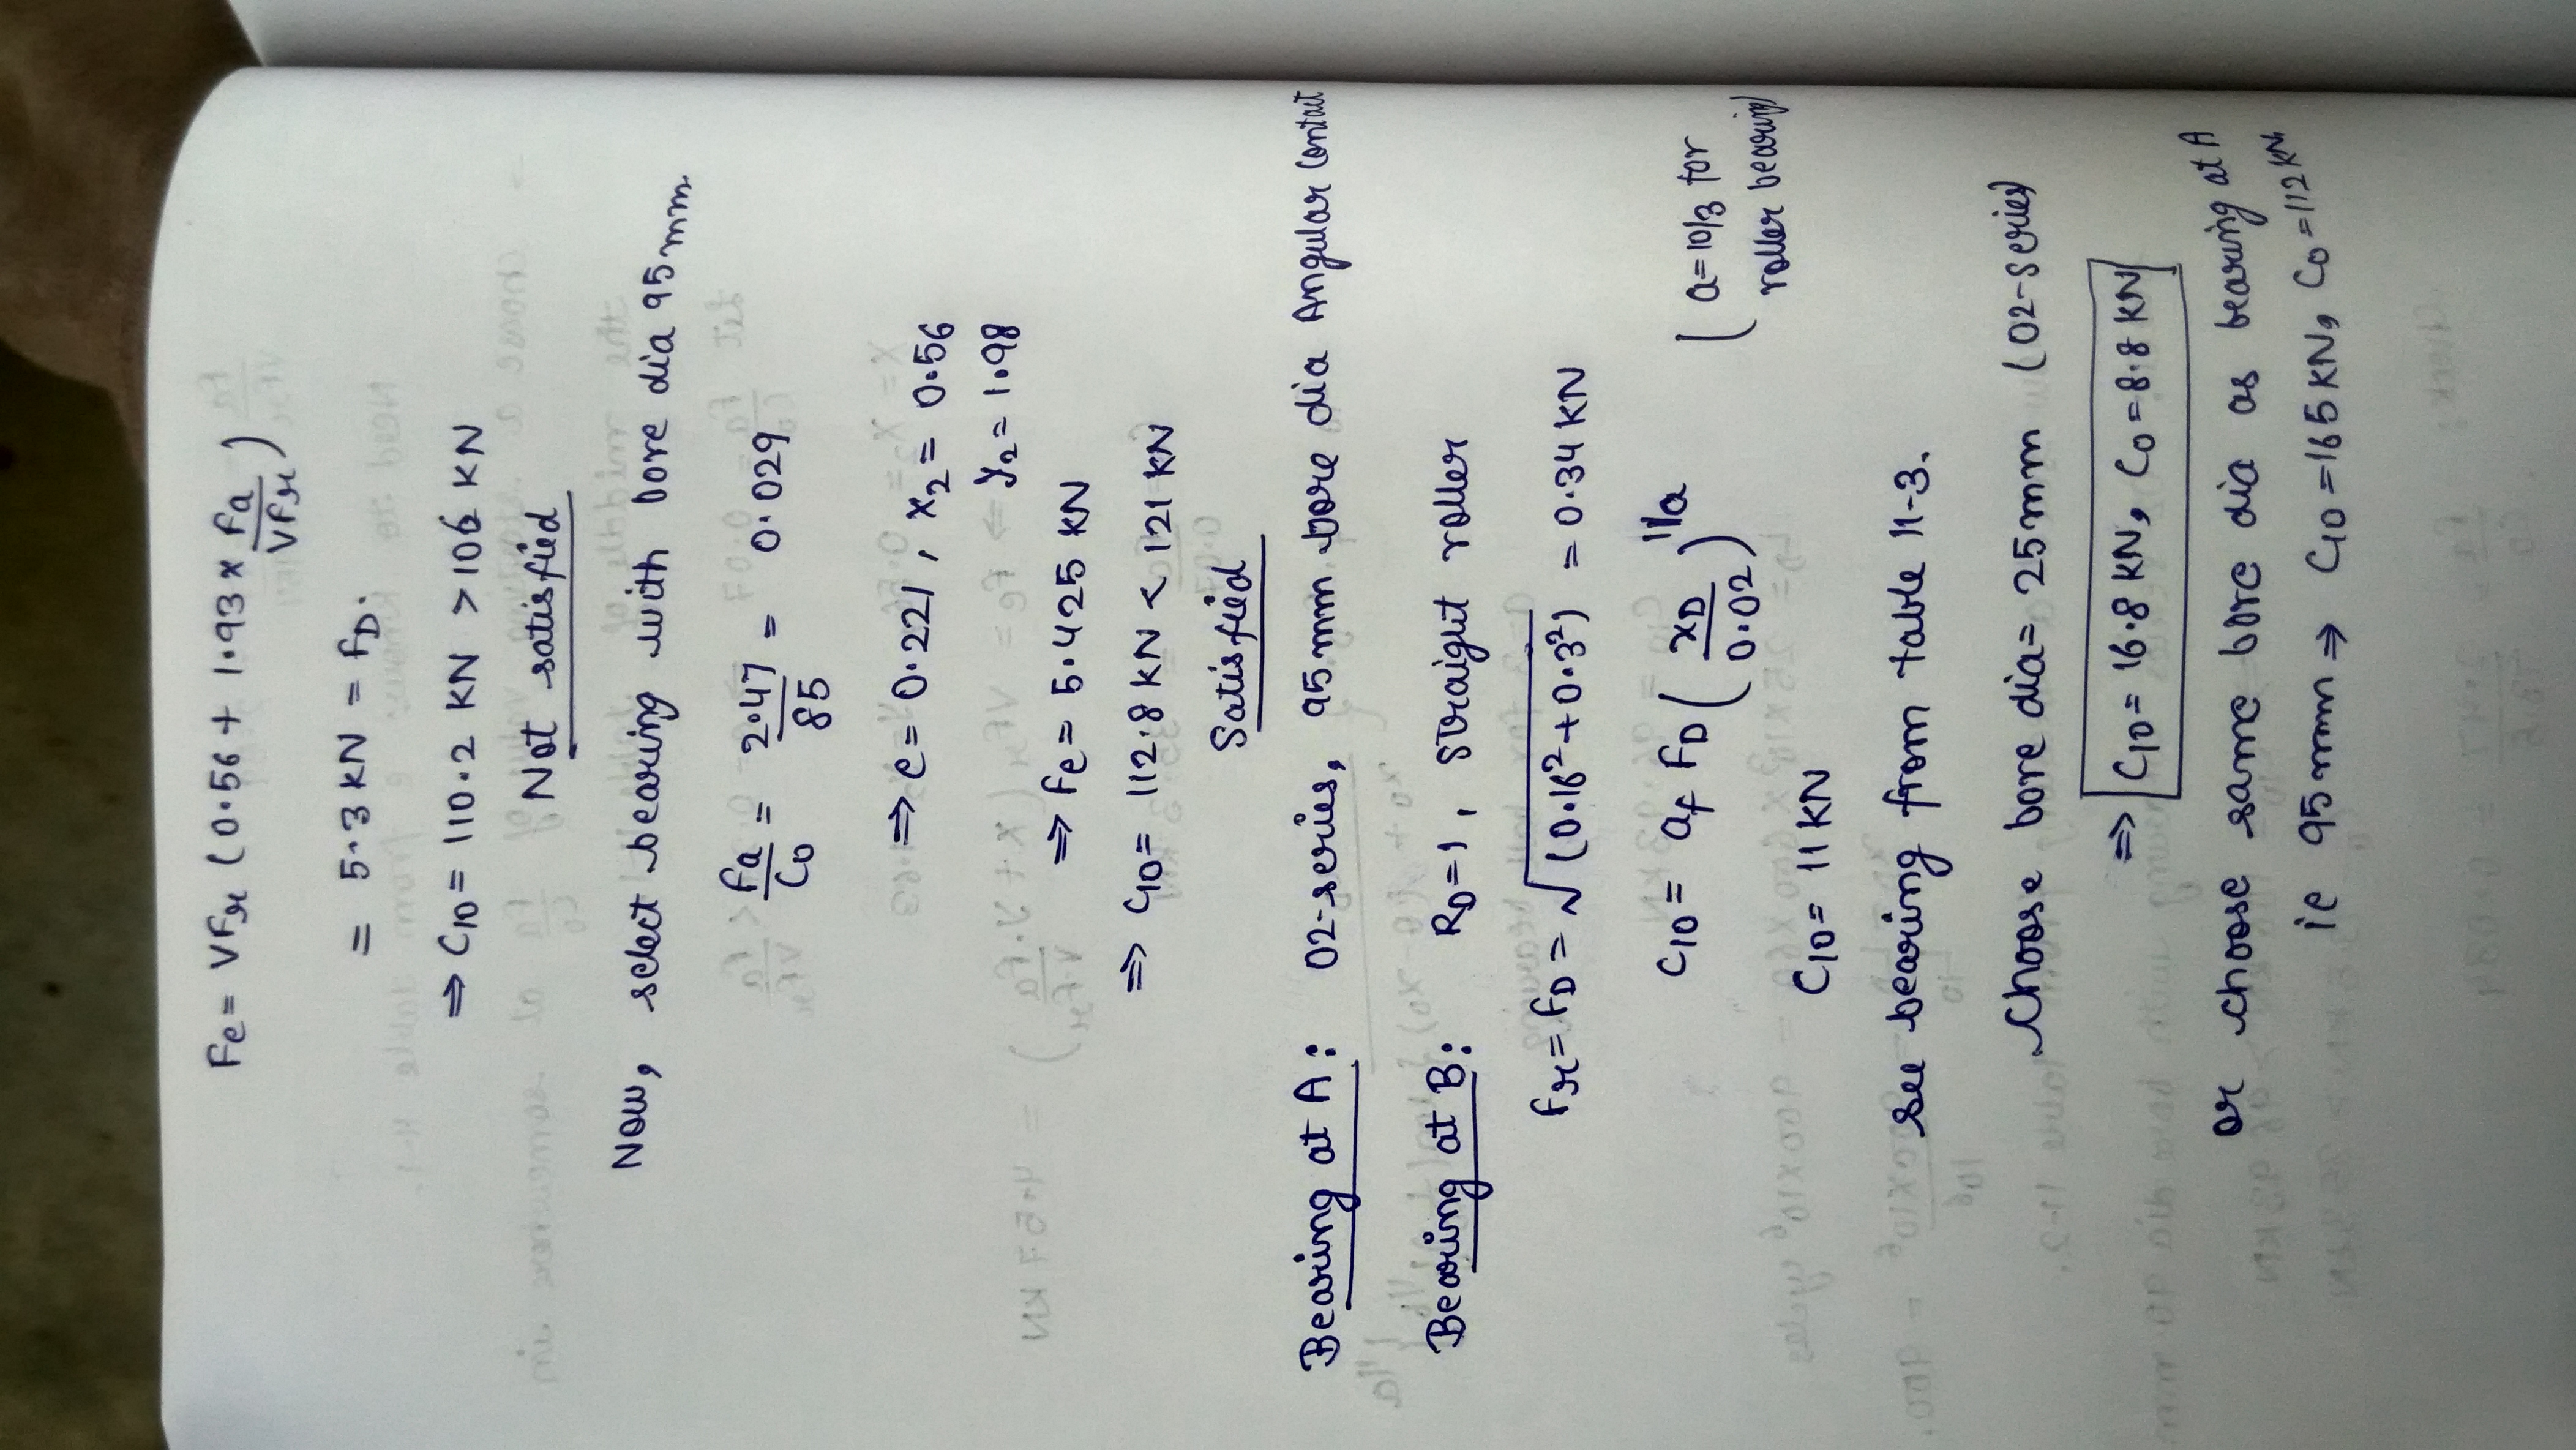 Fe = VFr (0.56 + 1.93 x Fa/VFr)
= 5.3 KN = FD.
⇒ C10 = 110.2 KN > 106 KN
Not satisfied
Now, select bearing with bore dia 95mm
Fa/C0 = 2.47/85 = 0.029
⇒ e = 0.221, X2 = 0.56
Y2 = 1.98
⇒ Fe = 5.425 KN
⇒ C10 = 112.8 KN < 121 KN
Satisfied
Bearing at A: 02-series, 95mm bore dia Angular Contact
Bearing at B: RD=1, straight roller
Fr = FD = √(0.16²+0.3²) = 0.34 KN
C10 = af FD (xD/0.02)^1/a (a=10/3 for
roller bearing)
C10 = 11 KN
see bearing from table 11-3.
choose bore dia = 25mm (02-series)
⇒ C10 = 16.8 KN, C0 = 8.8 KN
or choose same bore dia as bearing at A
ie 95mm ⇒ C10 = 165 KN, C0 = 112 KN.